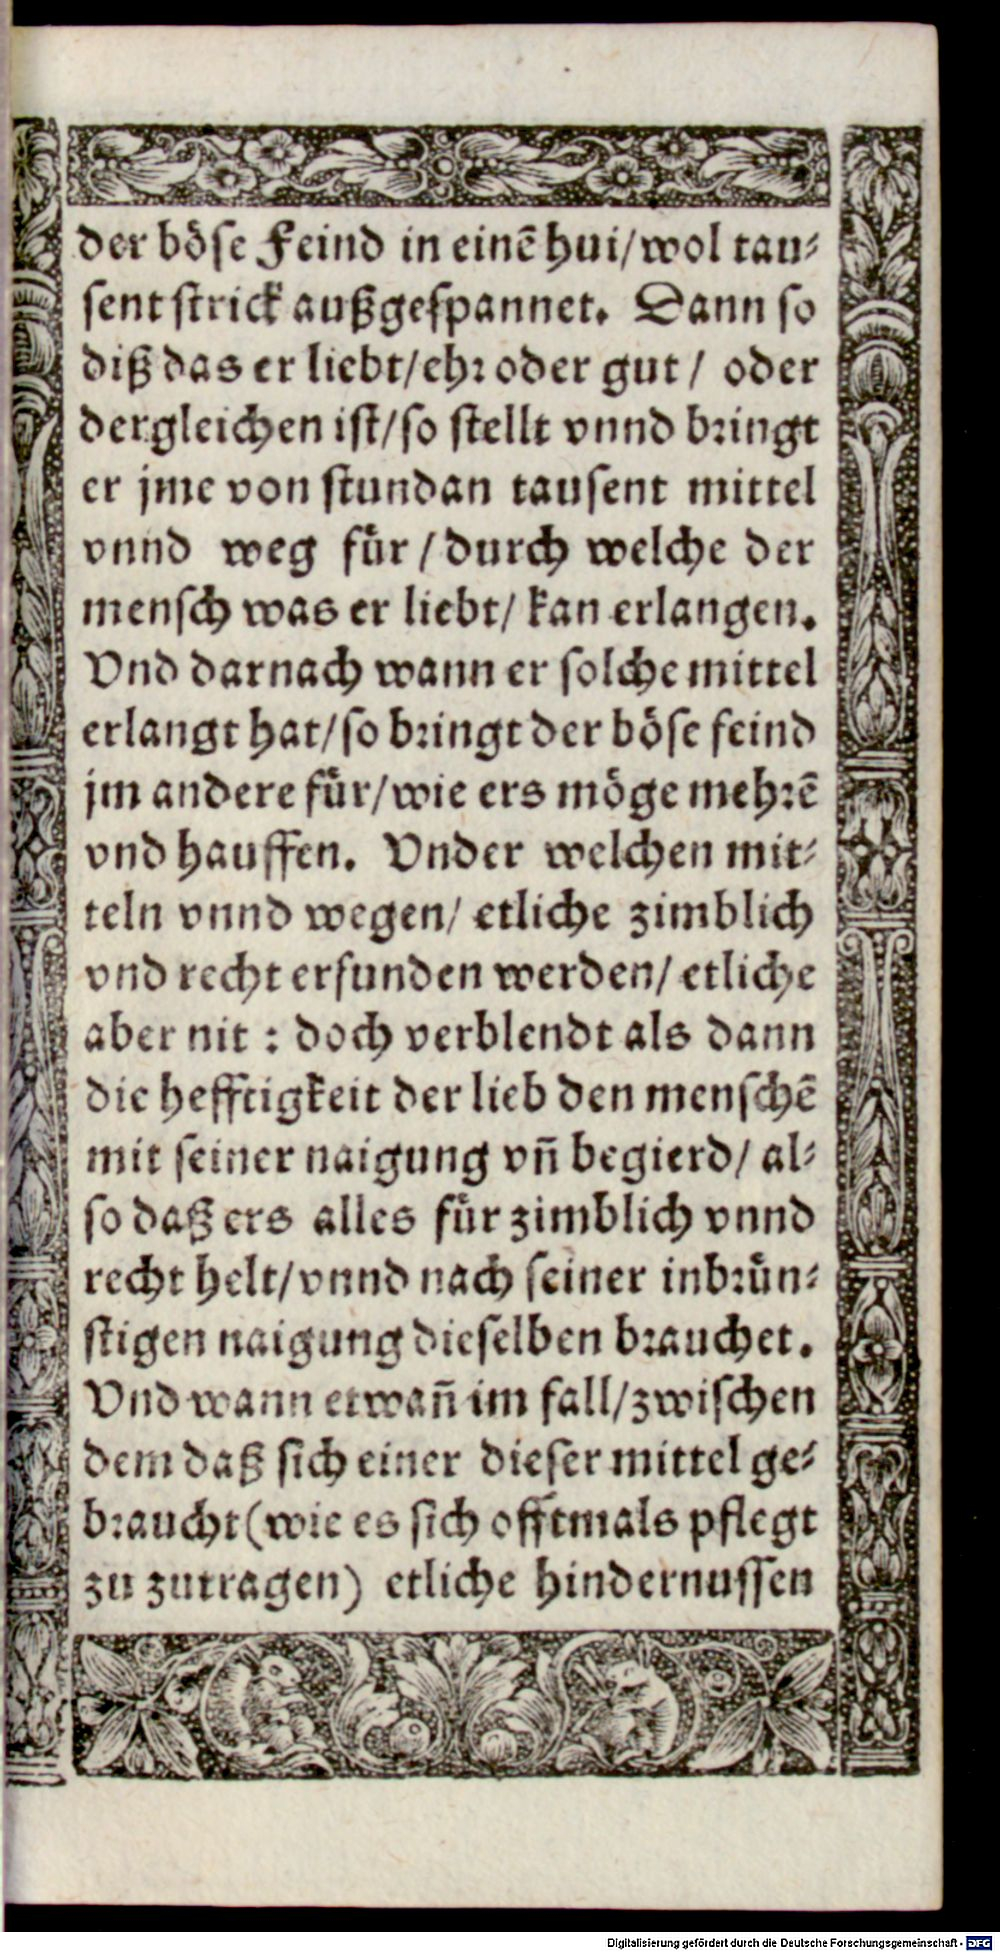 der böse Feind in einẽ hui/wol tau⸗
sent strick außgespannet. Dann so
diß das er liebt/ehr oder gut / oder
dergleichen ist/so stellt vnnd bringt
er jme von stundan tausent mittel
vnnd weg für / durch welche der
mensch was er liebt/ kan erlangen.
Vnd darnach wann er solche mittel
erlangt hat/so bringt der böse feind
jm andere für/wie ers möge mehrẽ
vnd hauffen. Vnder welchen mit⸗
teln vnnd wegen/ etliche zimblich
vnd recht erfunden werden/ etliche
aber nit : doch verblendt als dann
die hefftigkeit der lieb den menschẽ
mit seiner naigung vñ begierd/ al⸗
so daß ers alles für zimblich vnnd
recht helt/vnnd nach seiner inbrün⸗
stigen naigung dieselben brauchet.
Vnd wann etwañ im fall/zwischen
dem daß sich einer dieser mittel ge⸗
braucht(wie es sich offtmals pflegt
zu zutragen) etliche hindernussen
Digitalisierung gefördert durch die Deutsche Forschungsgemeinschaft - DFG